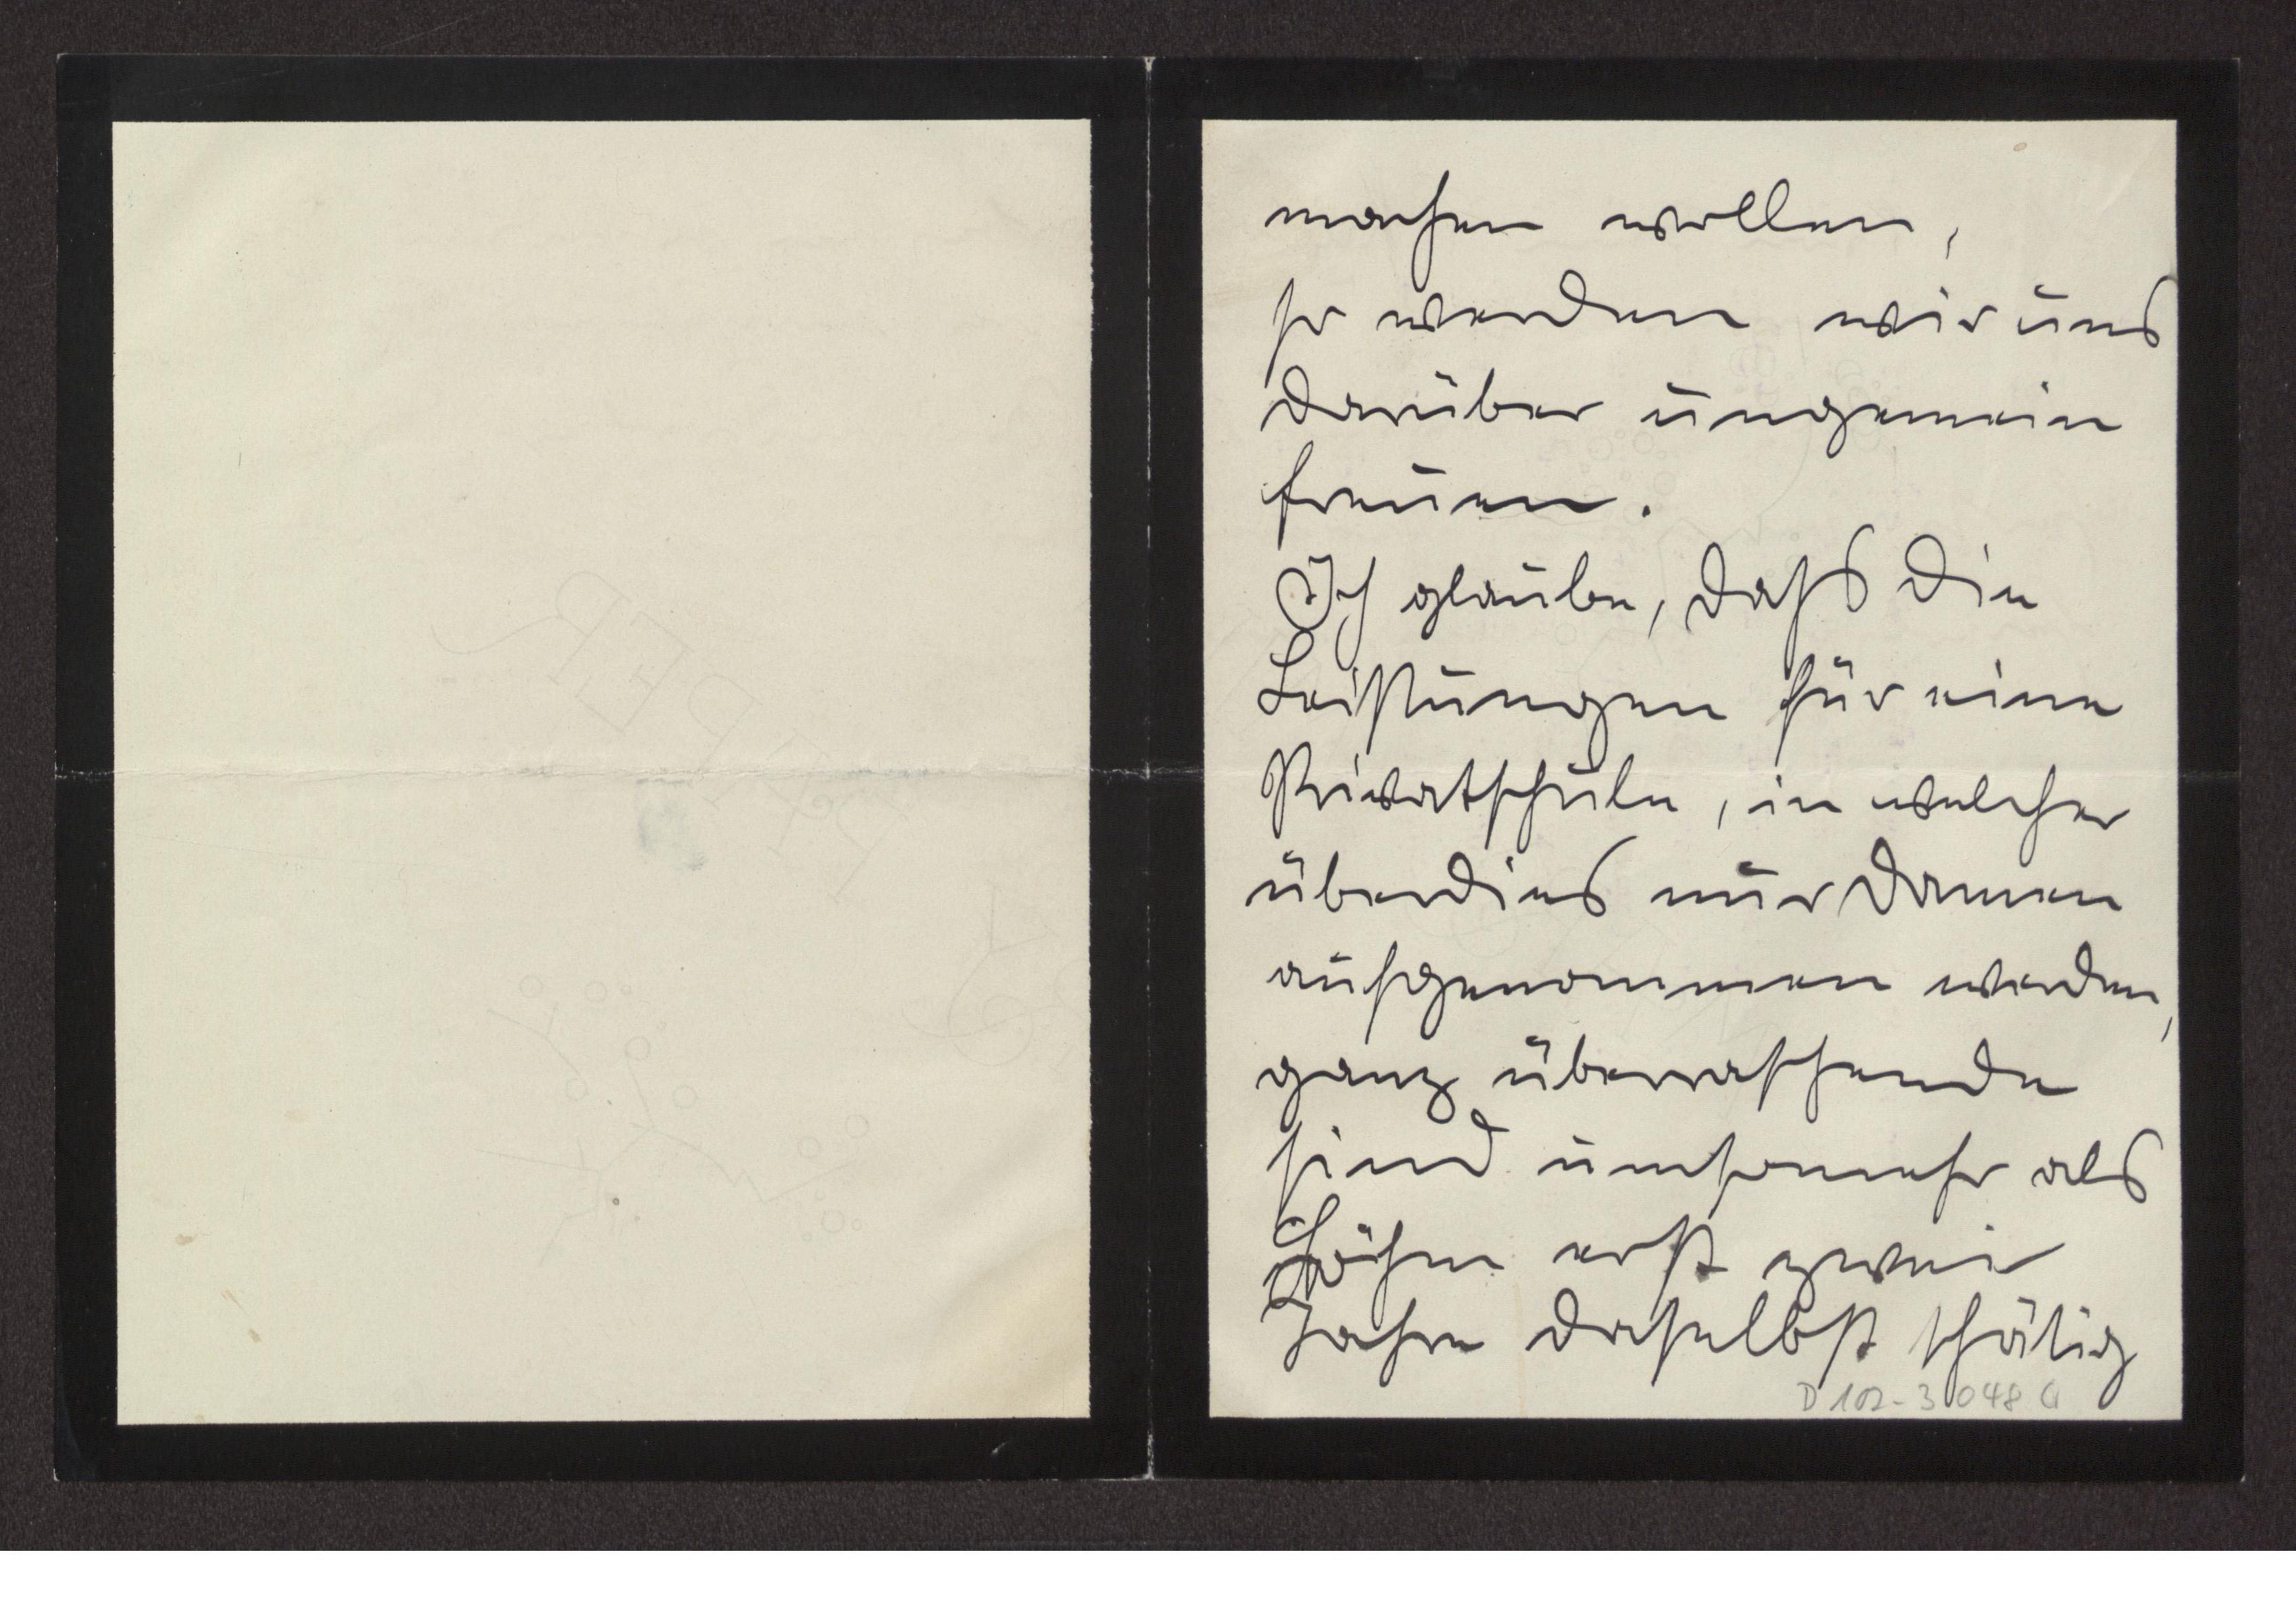 machen wollen,
so werden wir uns
darüber ungemein
freuen.
Ich glaube, dass die
Leistungen für eine
Privatschule, in welcher
überdies nur Damen
aufgenommen werden,
ganz überraschende
sind umsomehr als
Böhm erst zwei
Jahre daselbst thätig
D 102-3048 G